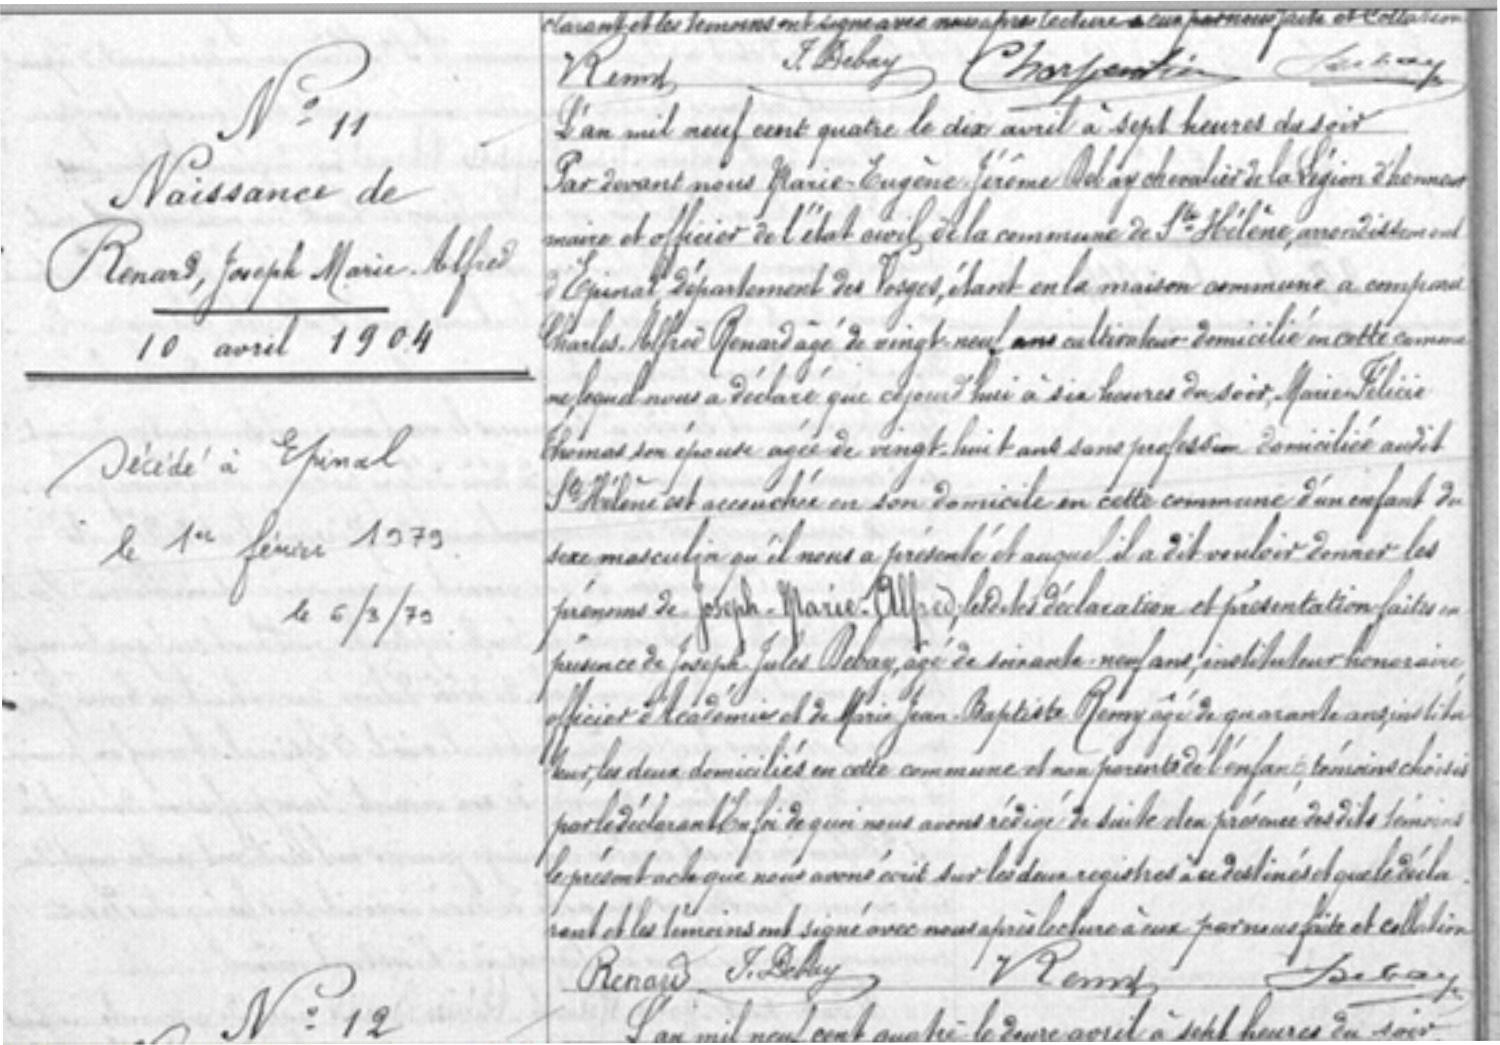 clarant et les témoins ont signé avec nous après lecture à eux par nous faite et Collation
Remy J. Debay Charpentier Debay
N° 11
Naissance de
Renard, Joseph Marie-Alfred
10 avril 1904
Décédé à Epinal
le 1er février 1979.
le 6/3/79
L'an mil neuf cent quatre le dix avril à sept heures du soir
Par devant nous Marie-Eugène-Jérôme Debay chevalier de la Légion d'honneur
maire et officier de l'état civil de la commune de Ste Hélène, arrondissement
d'Epinal département des Vosges, étant en la maison commune a comparu
Charles-Alfred Renard agé de vingt-neuf ans cultivateur domicilié en cette commu
ne, lequel nous a déclaré que cejourd'hui à six heures du soir, Marie-Félicie
Thomas son épouse agée de vingt-huit ans sans profession domiciliée audit
Ste Hélène est accouchée en son domicile en cette commune d'un enfant du
sexe masculin qu'il nous a présenté et auquel il a dit vouloir donner les
prénoms de Joseph-Marie-Alfred, lesdites déclaration et présentation faites en
présence de Joseph-Jules Debay, agé de soixante-neuf ans, instituteur honoraire
officier d'Académie et de Marie Jean-Baptiste Remy âgé de quarante ans, institu
teur, les deux domiciliés en cette commune et non parents de l'enfant témoins choisis
par le déclarant. En foi de quoi nous avons rédigé de suite et en présence desdits témoins
le présent acte que nous avons écrit sur les deux registres à ce destinés et que le décla
rant et les témoins ont signé avec nous après lecture à eux par nous faite et collation
Renard J. Debay Remy Debay
N° 12
L'an mil neuf cent quatre le douze avril à sept heures du soir